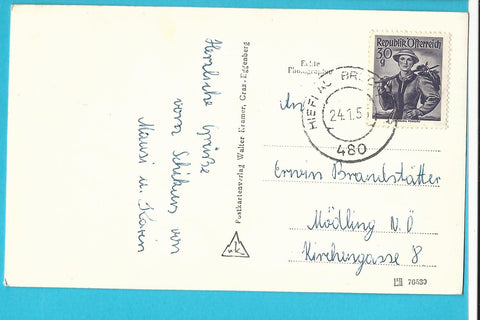 Herzliche Grüße
vom Schikurs von
Mausi u. Karin
Postkartenverlag Walter Kramer, Graz-Eggenberg
Echte
Photographie
Republik Österreich
30
g
HIEFLAU
24.1.5
480
An
Erwin Brandstätter
Mödling N.Ö
Kirchengasse 8
76839